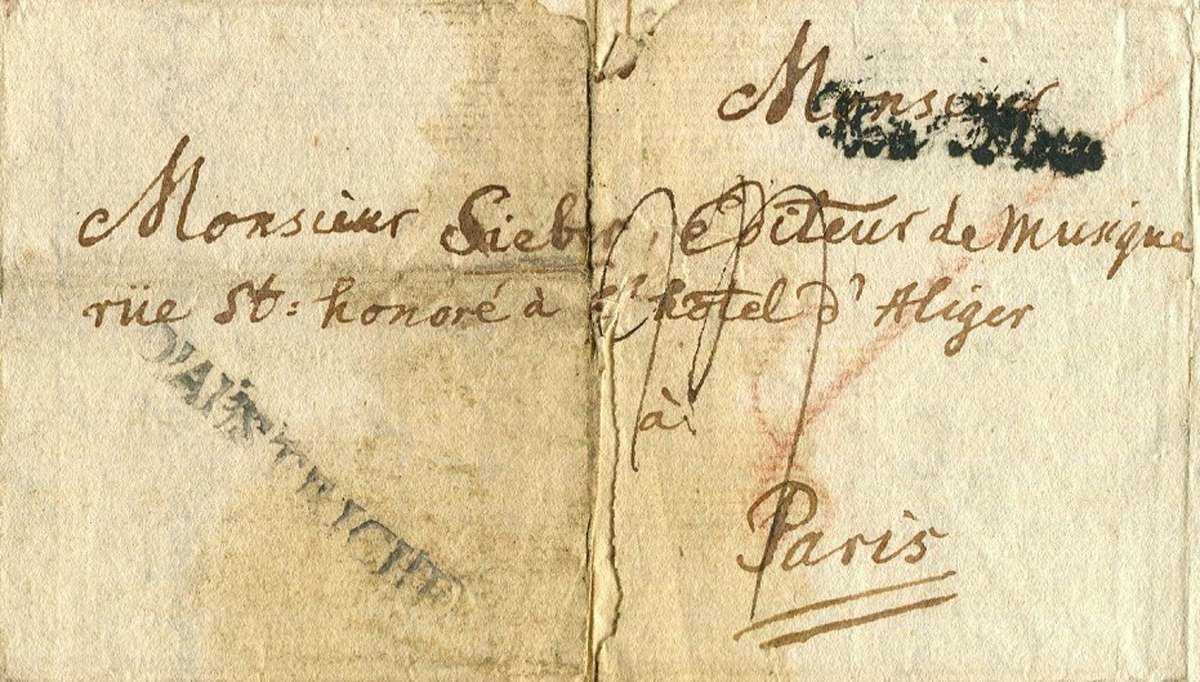 Monsieur
Monsieur Sieber, Editeur de Musique
rüe St: honoré à l'hôtel d'Aliger
à
Paris
D'AUTRICHE